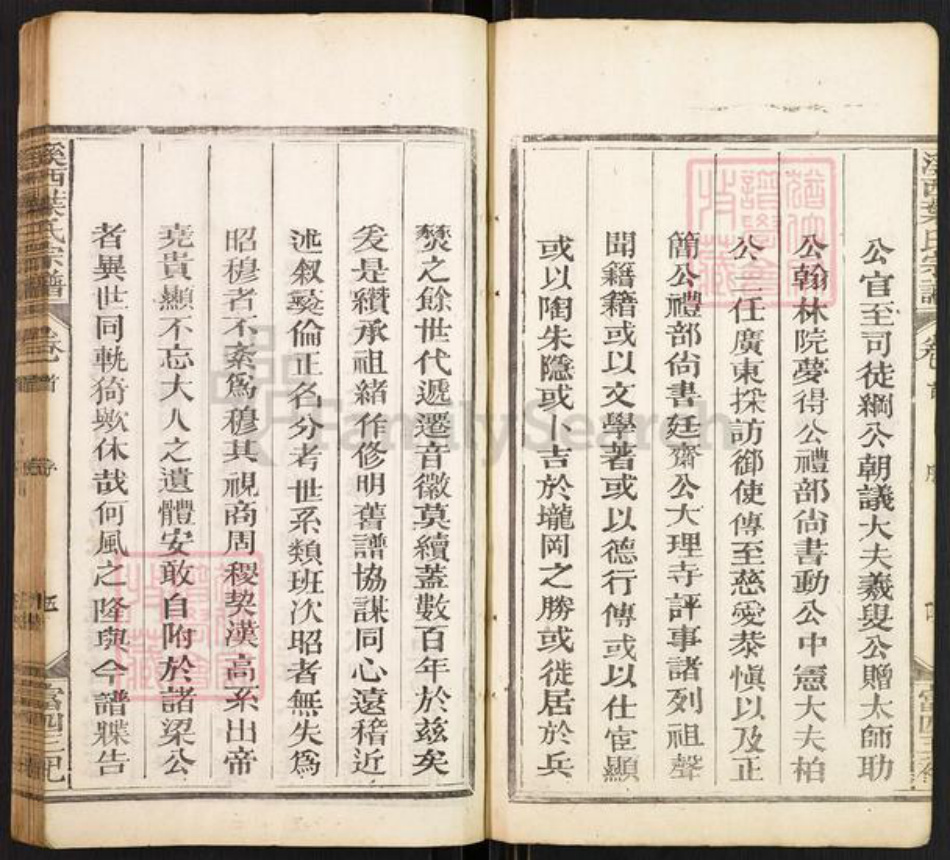 公官至司徒綱公朝議大夫羲叟公贈太師助
公翰林院夢得公禮部尚書動公中憲大夫柏
公一任廣東採訪御使傳至慈愛恭愼以及正
簡公禮部尚書廷齋公大理寺評事諸列祖聲
聞籍籍或以文學著或以德行傳或以仕宦顯
或以陶朱隱或卜吉於壠岡之勝或徙居於兵
燹之餘世代遞遷音徽莫續蓋數百年於兹矣
爰是纘承祖緒作修明舊譜協謀同心遠稽近
述叙彝倫正名分考世系類班次昭者無失爲
昭穆者不紊爲穆其視商周稷契漢高系出帝
堯貴顯不忘大人之遺體安敢自附於諸梁公
者異世同軌猗歟休哉何風之隆與今譜牒告
溪西葉氏宗譜
卷首
序
五
富四三祀
FamilySearch